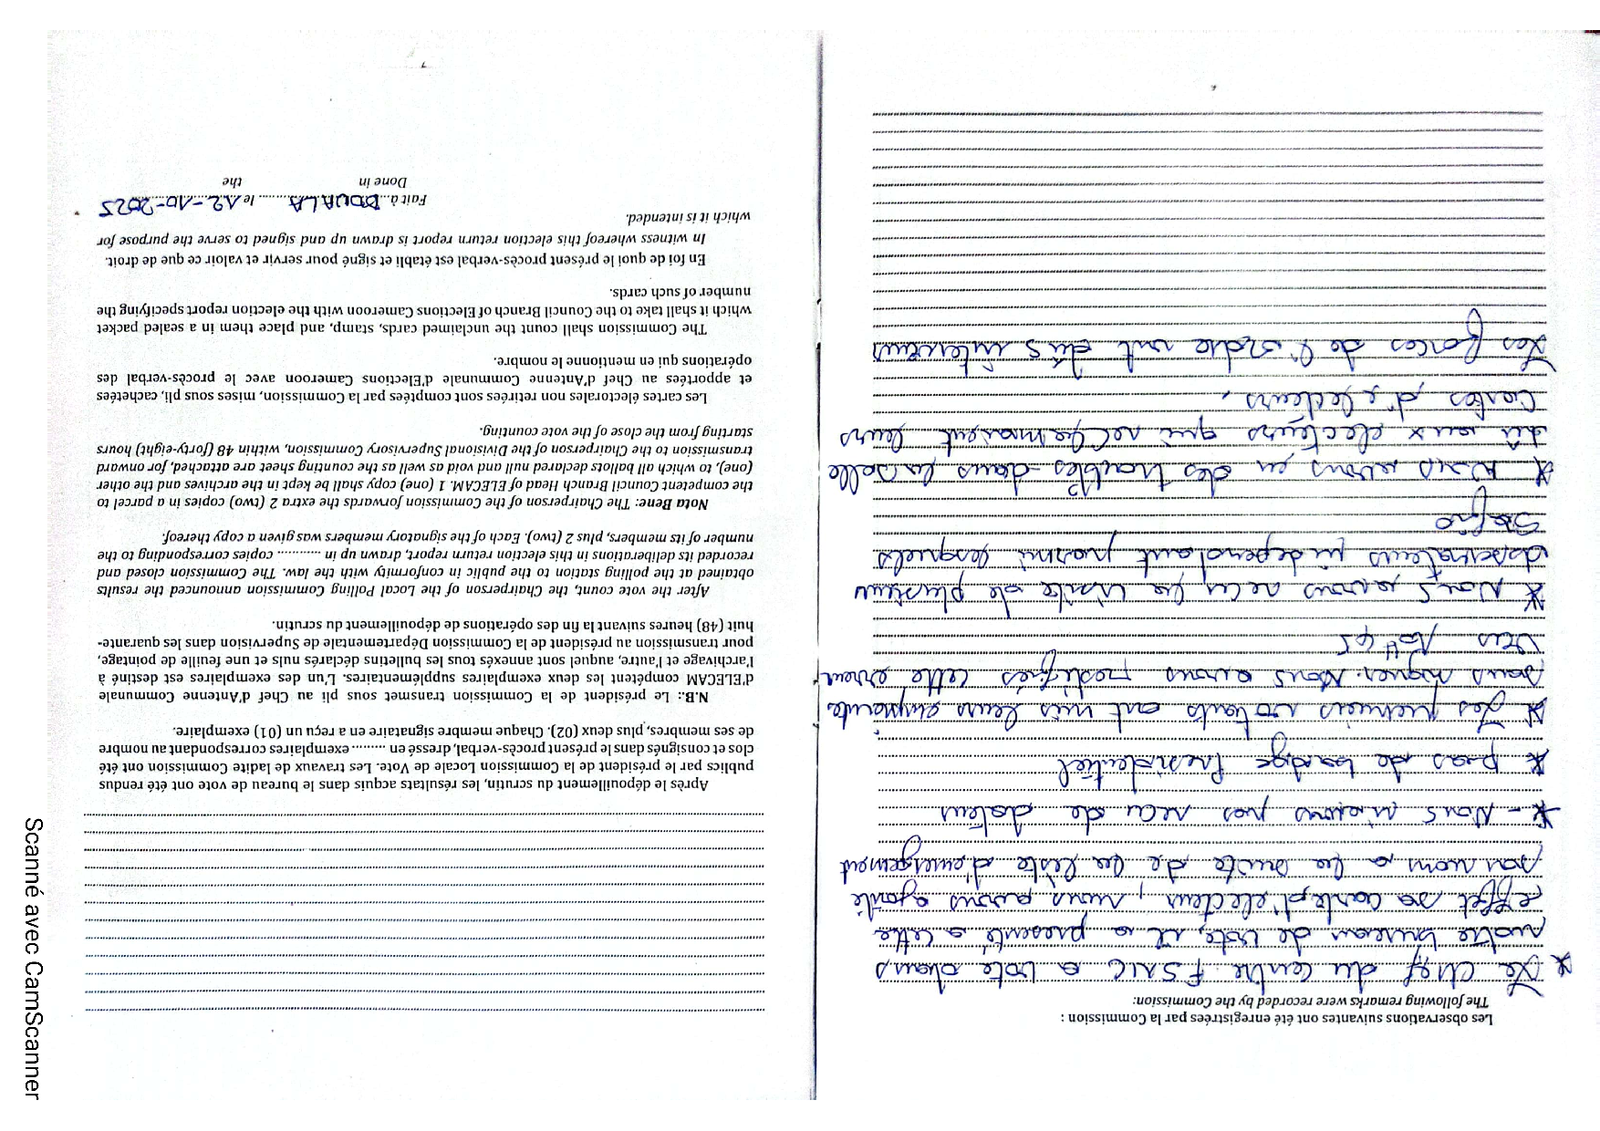 Les observations suivantes ont été enregistrées par la Commission :
The following remarks were recorded by the Commission:
* Le chef du centre FSNC a voté dans
notre bureau de vote, il a presenté a cette
effet sa carte d'electeur, nous avons ajouté
son nom a la suite de la liste d'emergement
* - Nous n'avons pas recu de dateur
* pas de badge Presidentiel
* Les premiers votants ont mis leurs empreinte
sans signer. Nous avons rectifiés cette erreur
vers
* Nous avons recu la visite de plusieur
observateurs independant parmi lesquels
* Nous avons eu des troubles dans la salle
dû aux electeurs qui reclammaient leurs
Cartes d'electeurs.
Les forces de l'ordre ont dûs intervenir
6
Après le dépouillement du scrutin, les résultats acquis dans le bureau de vote ont été rendus
publics par le président de la Commission Locale de Vote. Les travaux de ladite Commission ont été
clos et consignés dans le présent procès-verbal, dressé en ......... exemplaires correspondant au nombre
de ses membres, plus deux (02). Chaque membre signataire en a reçu un (01) exemplaire.
N.B.: Le président de la Commission transmet sous pli au Chef d'Antenne Communale
d'ELECAM compétent les deux exemplaires supplémentaires. L'un des exemplaires est destiné à
l'archivage et l'autre, auquel sont annexés tous les bulletins déclarés nuls et une feuille de pointage,
pour transmission au président de la Commission Départementale de Supervision dans les quarante-
huit (48) heures suivant la fin des opérations de dépouillement du scrutin.
After the vote count, the Chairperson of the Local Polling Commission announced the results
obtained at the polling station to the public in conformity with the law. The Commission closed and
recorded its deliberations in this election return report, drawn up in ............ copies corresponding to the
number of its members, plus 2 (two). Each of the signatory members was given a copy thereof.
Nota Bene: The Chairperson of the Commission forwards the extra 2 (two) copies in a parcel to
the competent Council Branch Head of ELECAM. 1 (one) copy shall be kept in the archives and the other
(one), to which all ballots declared null and void as well as the counting sheet are attached, for onward
transmission to the Chairperson of the Divisional Supervisory Commission, within 48 (forty-eight) hours
starting from the close of the vote counting.
Les cartes électorales non retirées sont comptées par la Commission, mises sous pli, cachetées
et apportées au Chef d'Antenne Communale d'Elections Cameroon avec le procès-verbal des
opérations qui en mentionne le nombre.
The Commission shall count the unclaimed cards, stamp, and place them in a sealed packet
which it shall take to the Council Branch of Elections Cameroon with the election report specifying the
number of such cards.
En foi de quoi le présent procès-verbal est établi et signé pour servir et valoir ce que de droit.
In witness whereof this election return report is drawn up and signed to serve the purpose for
which it is intended.
Fait à DOUALA le 12-10-2025
Done in the
7
Scanné avec CamScanner